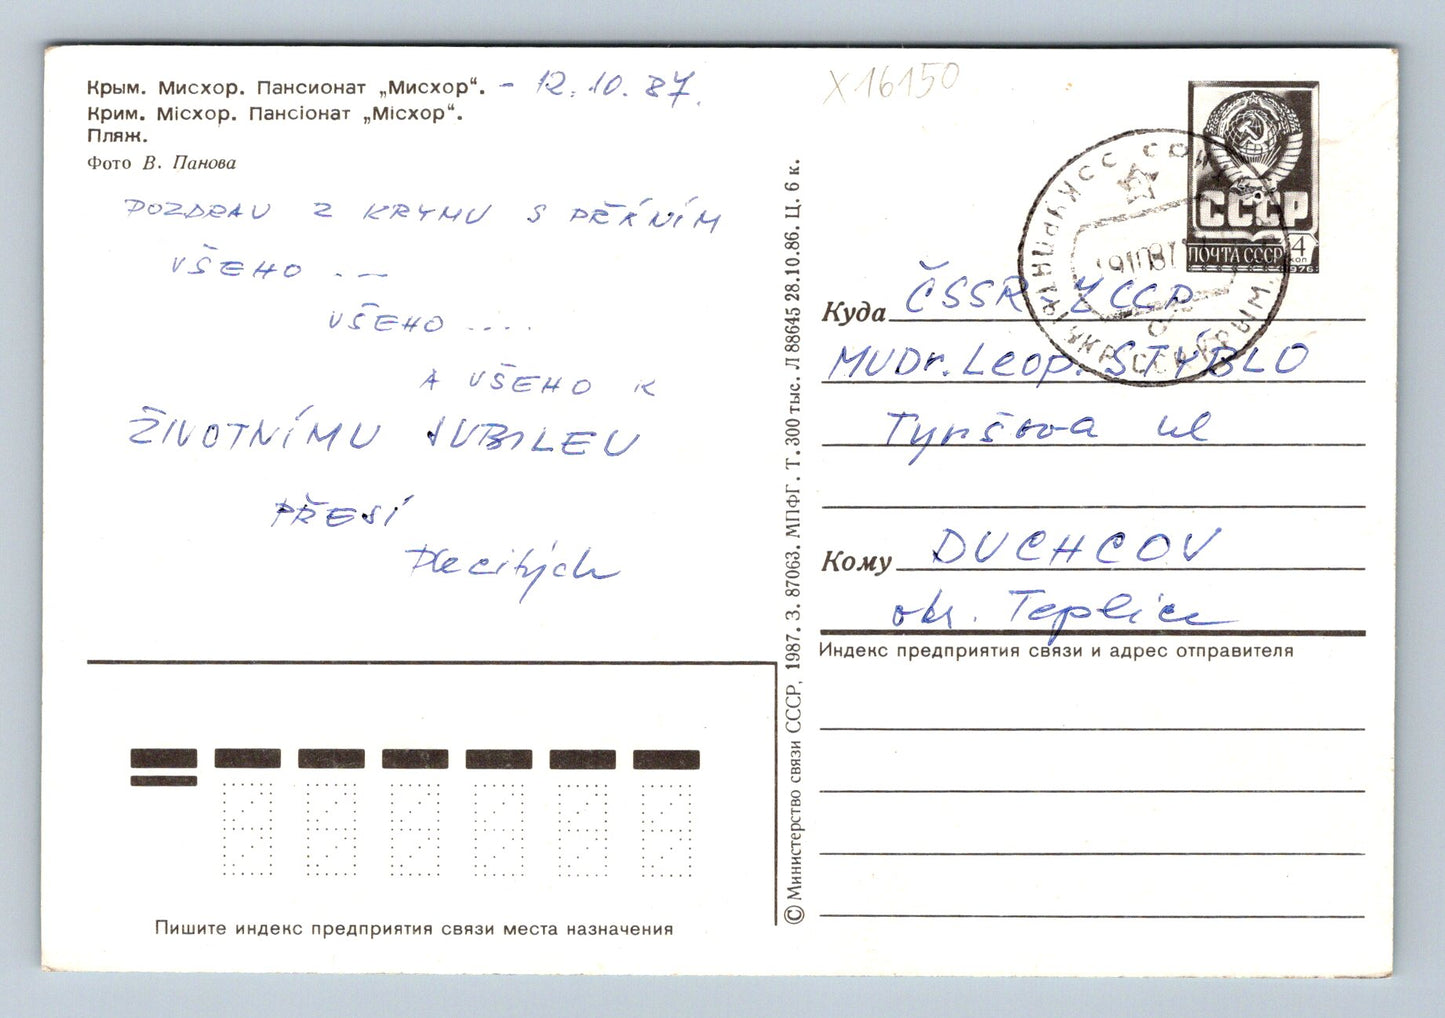 Крым. Мисхор. Пансионат „Мисхор“. - 12.10.87.
Крим. Місхор. Пансіонат „Місхор“.
Пляж.
Фото В. Панова
POZDRAV Z KRYMU S PŘÁNÍM
VŠEHO ...
VŠEHO ....
A VŠEHO K
ŽIVOTNÍMU JUBILEU
PŘESÍ
Пишите индекс предприятия связи места назначения
© Министерство связи СССР, 1987. З. 87063. МПФГ. Т. 300 тыс. Л 88645 28.10.86. Ц. 6 к.
X16150
СССР
ПОЧТА СССР
4
коп
1976
УКР. ССР КРЫМ.
Куда ČSSR - ЧССР
MUDr. Leop. STÝBLO
Tyršova ul
Кому DUCHCOV
okr. Teplice
Индекс предприятия связи и адрес отправителя